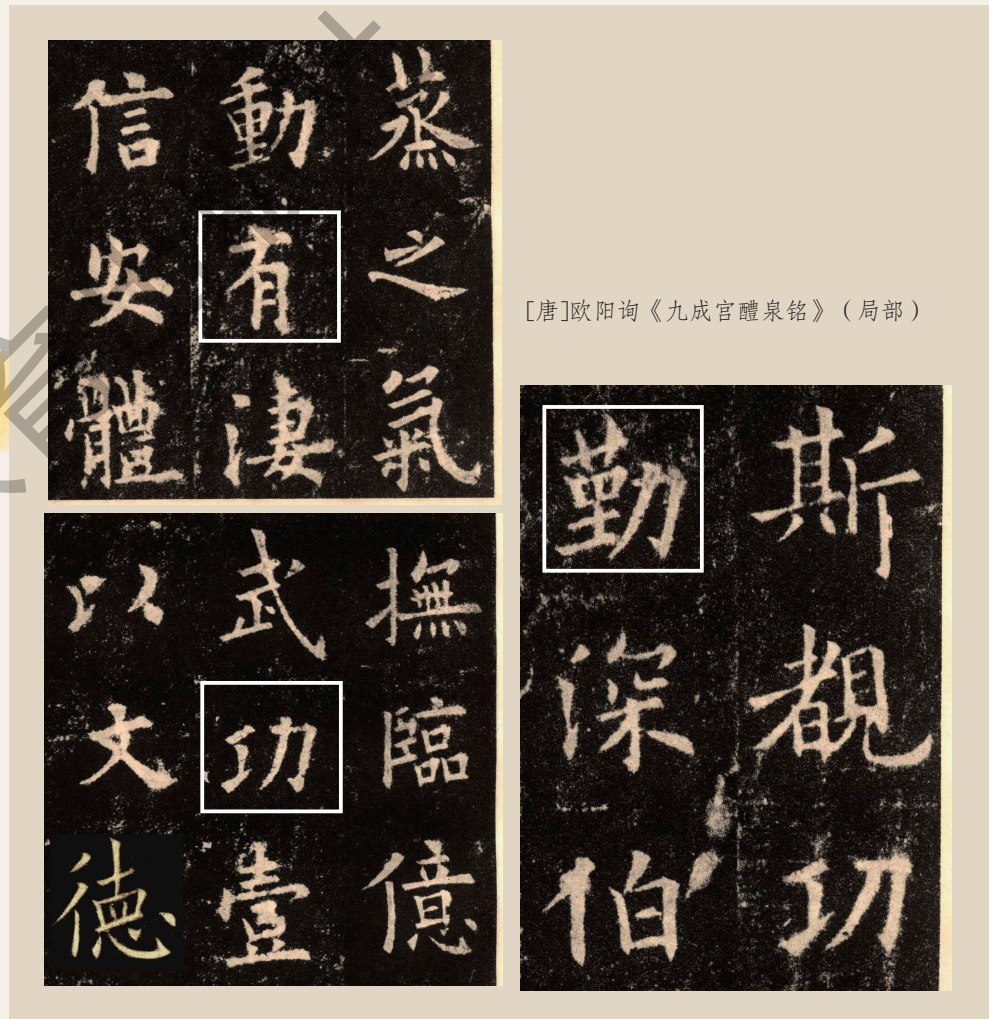 蒸之氣
動有淒
信安體
[唐]欧阳询《九成宫醴泉铭》(局部)
撫臨億
武功壹
以文德
斯覩功
勤深伯